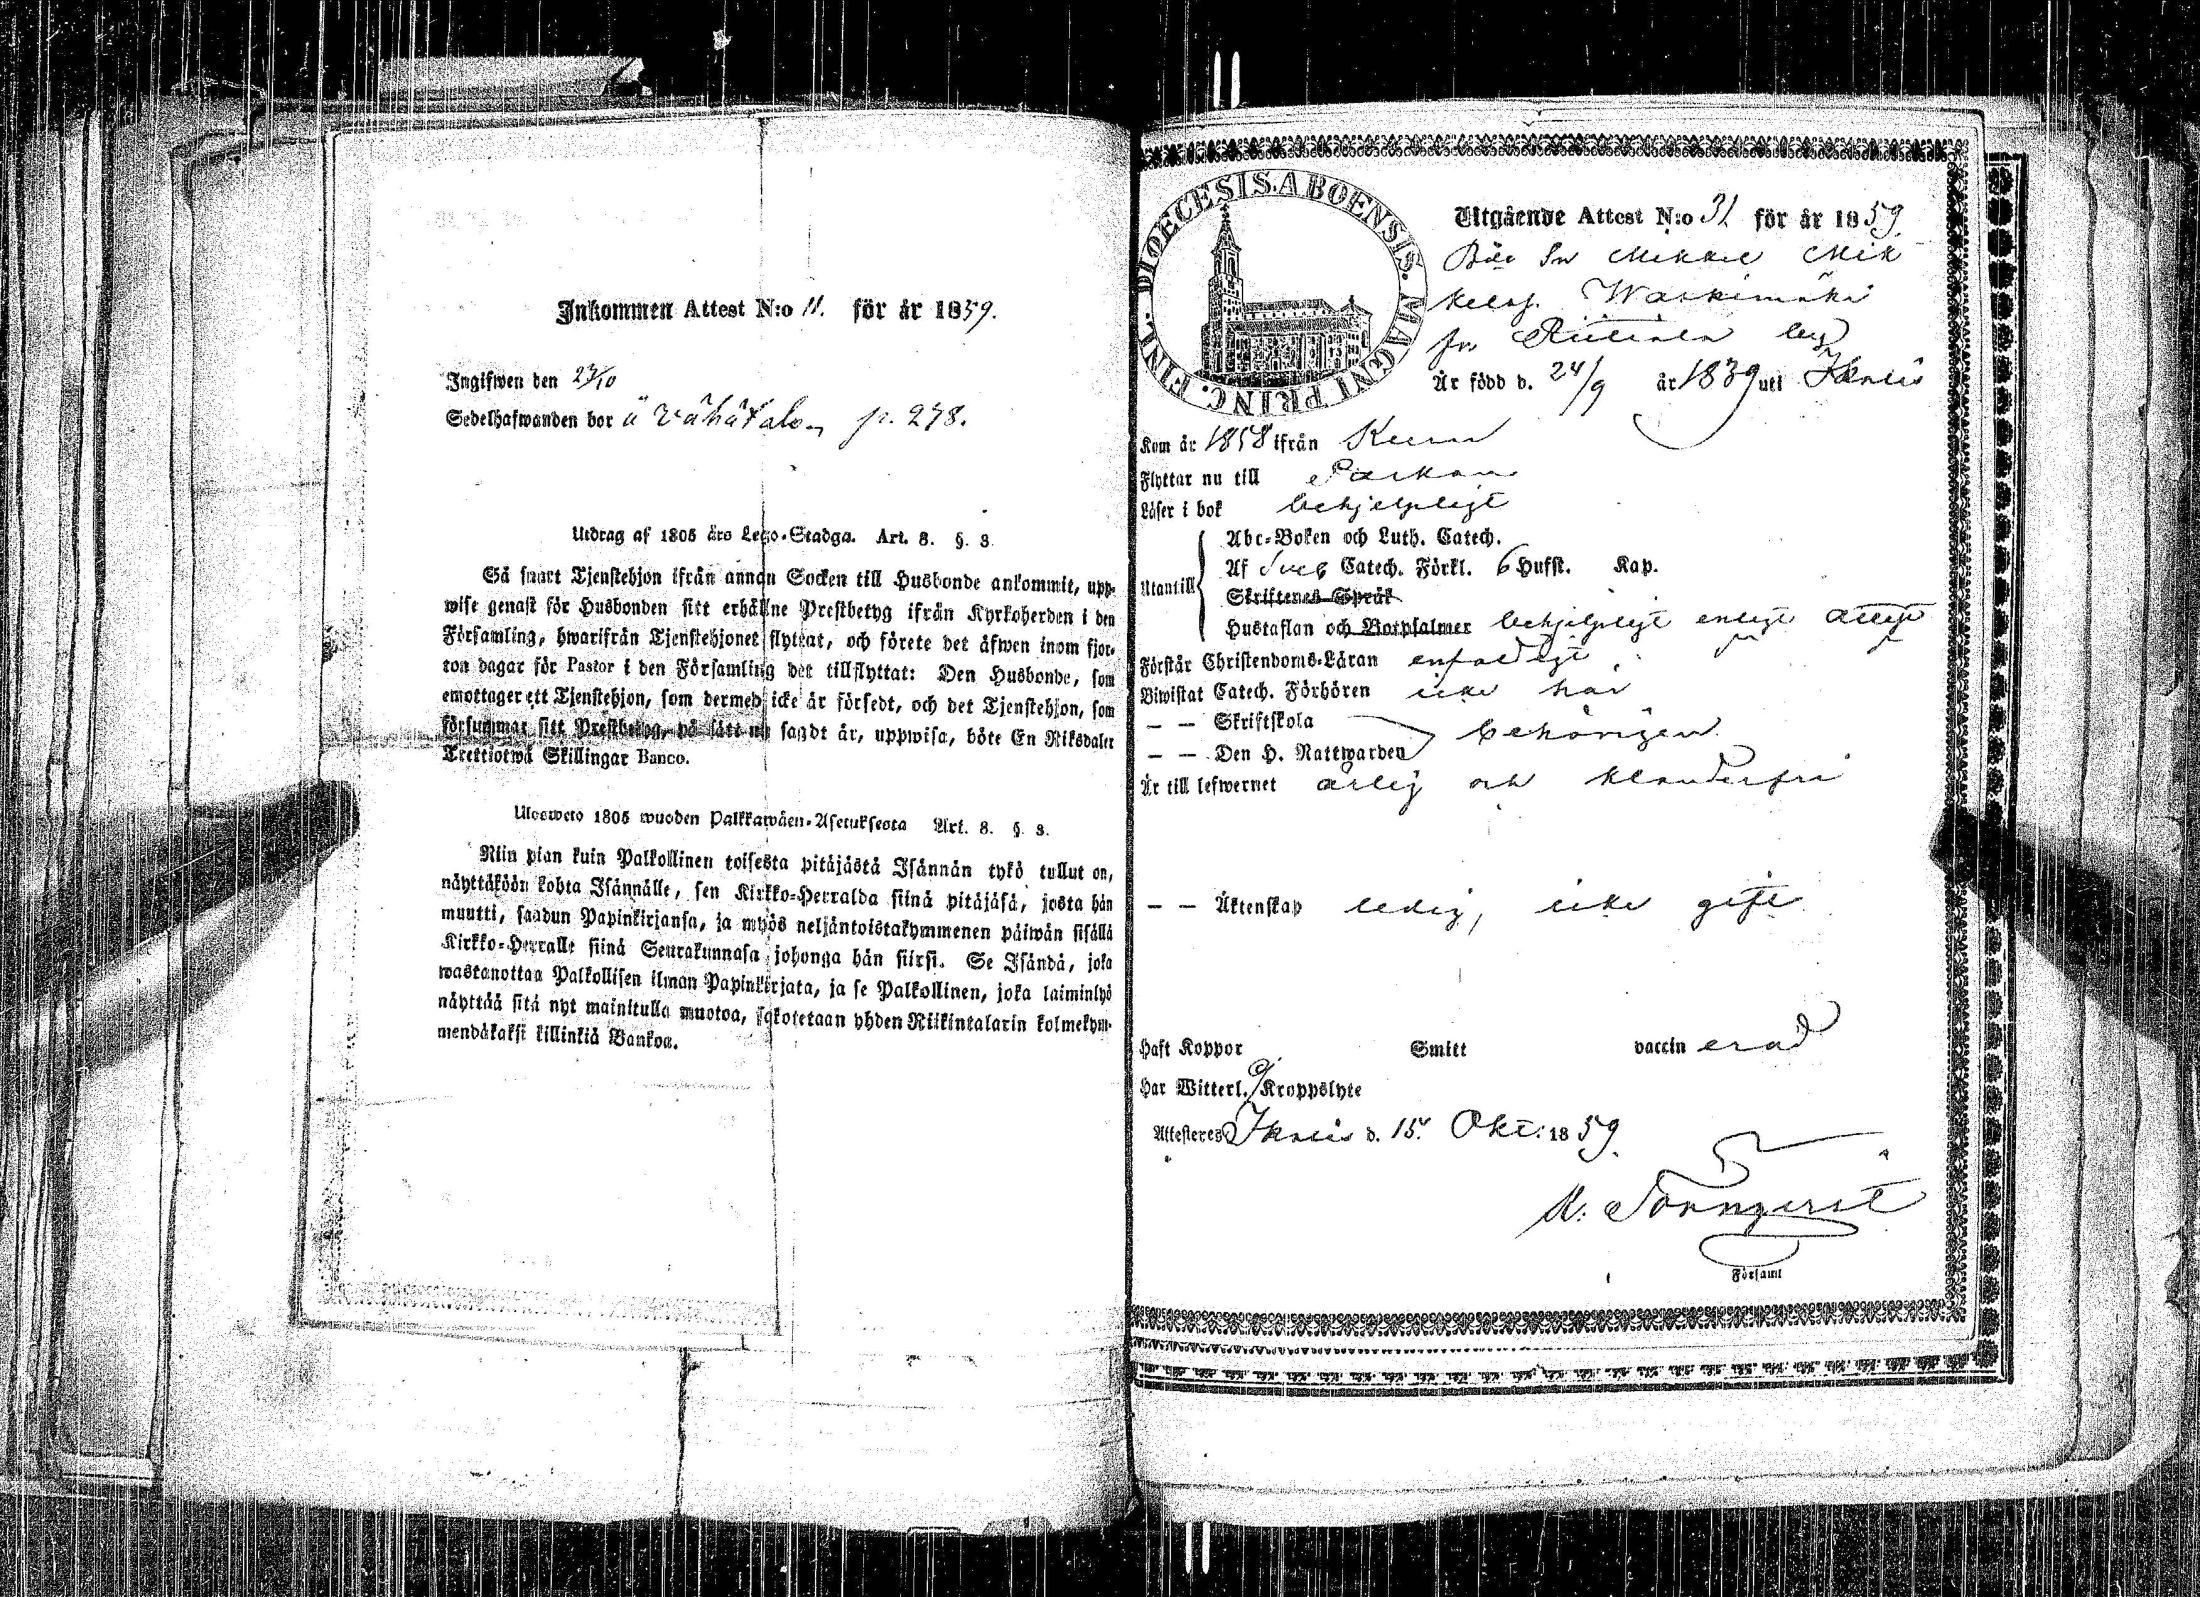 Inkommen Attest N:o 11. för år 1859.
Ingifwen den 23/10
Sedelhafwanden bor å Vähätalo p. 278.
Utdrag af 1805 års Lego-Stadga. Art. 8. §. 8.
Så snart Tjenstehjon ifrån annan Socken till Husbonde ankommit, upp-
wise genast för Husbonden sitt erhållne Prestbetyg ifrån Kyrkoherden i den
Församling, hwarifrån Tjenstehjonet flyttat, och förete det äfwen inom fjor-
ton dagar för Pastor i den Församling det tillflyttat: Den Husbonde, som
emottager ett Tjenstehjon, som dermed icke är försedt, och det Tjenstehjon, som
försummar sitt Prestbetyg, på sätt nu sagdt är, uppwisa, böte En Riksdaler
Trettiotwå Skillingar Banco.
Ulosweto 1805 wuoden Palkkawäen-Asetuksesta Art. 8. §. 8.
Niin pian kuin Palkollinen toisesta pitäjästä Isännän tykö tullut on,
näyttäköön kohta Isännälle, sen Kirkko-Herralda siinä pitäjäsä, josta hän
muutti, saadun Papinkirjansa, ja myös neljäntoistakymmenen päiwän sisällä
Kirkko-Herralle siinä Seurakunnasa johonga hän siirsi. Se Isändä, joka
wastanottaa Palkollisen ilman Papinkirjata, ja se Palkollinen, joka laiminlyö
näyttää sitä nyt mainitulla muotoa, sakotetaan yhden Riikintalarin kolmekym-
mendäkaksi killinkiä Bankoa.
DIOECESIS. ABOENSIS. MAGNI PRINC. FINL.
Utgående Attest N:o 31 för år 1859.
Mikkel Mik
kelsf.
fr. by
Är född d. 24/9 år 1839 uti Ikalis
Kom år 1858 ifrån
Flyttar nu till Parkano
Läser i bok behjelpligt
Abc-Boken och Luth. Catech.
Af Sveb Catech. Förkl. 6 Hufst. Kap.
Utantill
Skriftenes Språk
Hustaflan och Botpsalmer behjelpligt enligt attest
Förstår Christendoms-Läran enfaldigt
Biwistat Catech. Förhören icke här
— — Skriftskola
behörigen
— — Den H. Nattwarden
Är till lefwernet ärlig och klanderfri
— — Äktenskap ledig, icke gift
Haft Koppor Smitt vaccinerad
Har Witterl. Kroppslyte
Attesteres Ikalis d. 15. Okt: 1859.
Församl